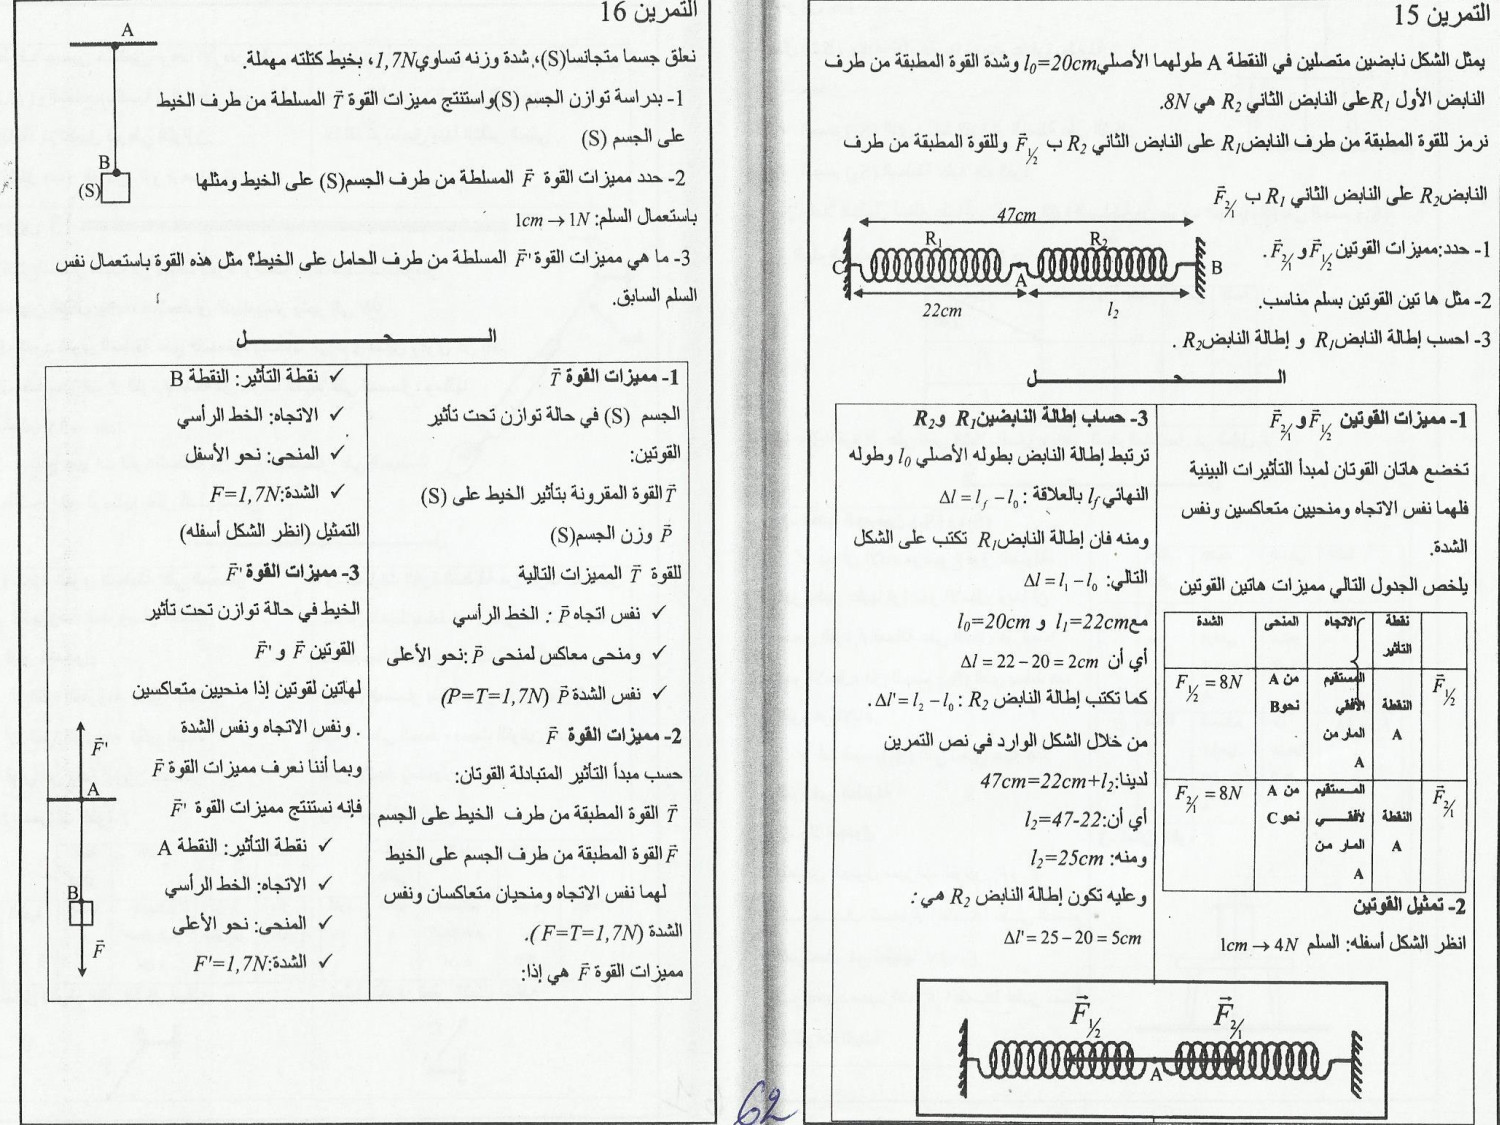 التمرين 15
يمثل الشكل نابضين متصلين في النقطة A طولهما الأصلي l₀=20cm وشدة القوة المطبقة من طرف
النابض الأول R₁ على النابض الثاني R₂ هي 8N.
نرمز للقوة المطبقة من طرف النابض R₁ على النابض الثاني R₂ ب F⃗₁/₂ وللقوة المطبقة من طرف
النابض R₂ على النابض الثاني R₁ ب F⃗₂/₁
1- حدد:مميزات القوتين F⃗₁/₂ و F⃗₂/₁ .
2- مثل ها تين القوتين بسلم مناسب.
3- احسب إطالة النابض R₁ و إطالة النابض R₂ .
47cm
R₁ R₂
C A B
22cm l₂
الـــحـــل
1- مميزات القوتين F⃗₁/₂ و F⃗₂/₁
تخضع هاتان القوتان لمبدأ التأثيرات البينية
فلهما نفس الاتجاه ومنحيين متعاكسين ونفس
الشدة.
يلخص الجدول التالي مميزات هاتين القوتين
نقطة التأثير الاتجاه المنحى الشدة
F⃗₁/₂ النقطة A المستقيم الأفقي المار من A من A نحو B F₁/₂ = 8N
F⃗₂/₁ النقطة A المستقيم لأفقي المار من A من A نحو C F₂/₁ = 8N
2- تمثيل القوتين
انظر الشكل أسفله: السلم 1cm → 4N
3- حساب إطالة النابضين R₁ و R₂
ترتبط إطالة النابض بطوله الأصلي l₀ وطوله
النهائي l_f بالعلاقة : Δl = l_f − l₀
ومنه فان إطالة النابض R₁ تكتب على الشكل
التالي: Δl = l₁ − l₀
مع l₁=22cm و l₀=20cm
أي أن Δl = 22 − 20 = 2cm
كما تكتب إطالة النابض R₂ : Δl' = l₂ − l₀ .
من خلال الشكل الوارد في نص التمرين
لدينا: 47cm=22cm+l₂
أي أن: l₂=47-22
ومنه: l₂=25cm
وعليه تكون إطالة النابض R₂ هي :
Δl' = 25 − 20 = 5cm
F⃗₁/₂ F⃗₂/₁
A
التمرين 16
نعلق جسما متجانسا(S)،شدة وزنه تساوي1,7N، بخيط كتلته مهملة.
1- بدراسة توازن الجسم (S)واستنتج مميزات القوة T⃗ المسلطة من طرف الخيط
على الجسم (S)
2- حدد مميزات القوة F⃗ المسلطة من طرف الجسم(S) على الخيط ومثلها
باستعمال السلم: 1cm → 1N
3- ما هي مميزات القوة F⃗' المسلطة من طرف الحامل على الخيط؟ مثل هذه القوة باستعمال نفس
السلم السابق.
A
B
(S)
الـــحـــل
1- مميزات القوة T⃗
الجسم (S) في حالة توازن تحت تأثير
القوتين:
T⃗ القوة المقرونة بتأثير الخيط على (S)
P⃗ وزن الجسم(S)
للقوة T⃗ المميزات التالية
✓ نفس اتجاه P⃗ : الخط الرأسي
✓ ومنحى معاكس لمنحى P⃗ :نحو الأعلى
✓ نفس الشدة P⃗ (P=T=1,7N)
2- مميزات القوة F⃗
حسب مبدأ التأثير المتبادلة القوتان:
T⃗ القوة المطبقة من طرف الخيط على الجسم
F⃗ القوة المطبقة من طرف الجسم على الخيط
لهما نفس الاتجاه ومنحيان متعاكسان ونفس
الشدة (F=T=1,7N ).
مميزات القوة F⃗ هي إذا:
✓ نقطة التأثير: النقطة B
✓ الاتجاه: الخط الرأسي
✓ المنحى: نحو الأسفل
✓ الشدة:F=1,7N
التمثيل (انظر الشكل أسفله)
3- مميزات القوة F⃗'
الخيط في حالة توازن تحت تأثير
القوتين F⃗ و F⃗'
لهاتين لقوتين إذا منحيين متعاكسين
. ونفس الاتجاه ونفس الشدة
وبما أننا نعرف مميزات القوة F⃗
فإنه نستنتج مميزات القوة F⃗'
✓ نقطة التأثير: النقطة A
✓ الاتجاه: الخط الرأسي
✓ المنحى: نحو الأعلى
✓ الشدة:F'=1,7N
F⃗'
A
B
F⃗
62